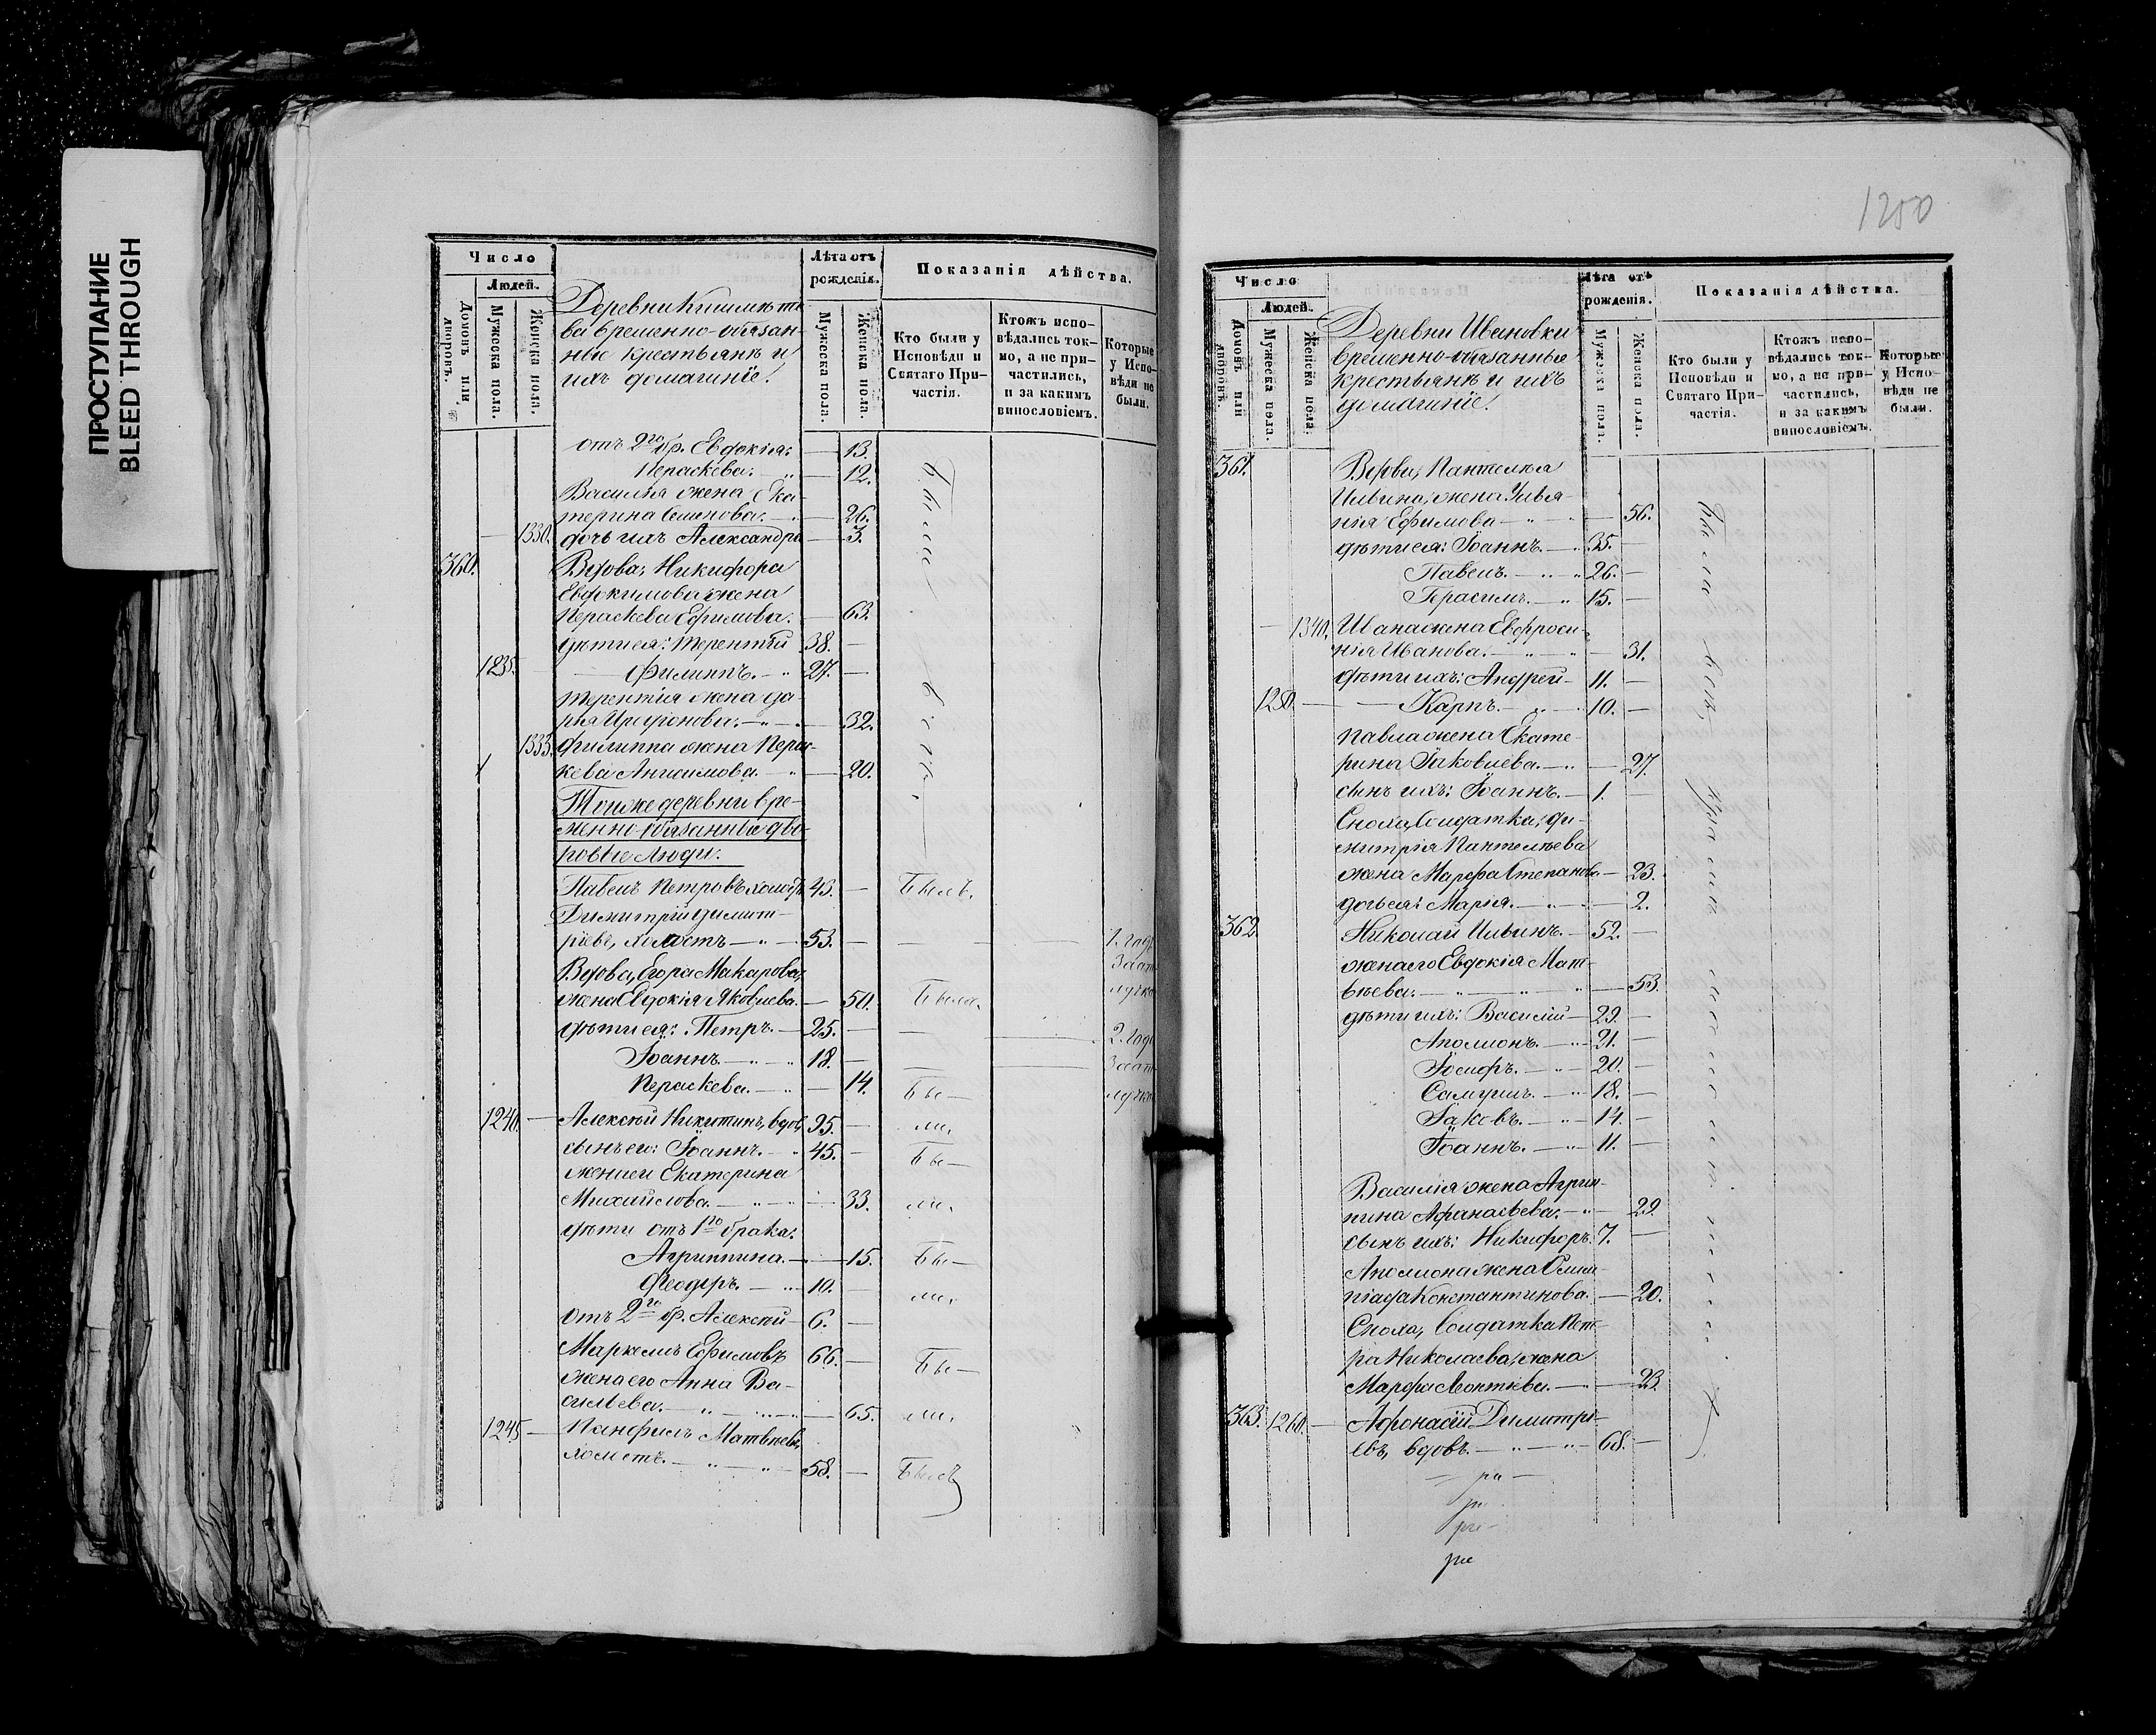 ПРОСТУПАНИЕ
BLEED THROUGH
Число
Людей.
Домовъ или дворовъ.
Мужеска пола.
Женска пола.
временно-обязан-
ные крестьянѣ и
ихъ домашніе.
Лѣта отъ
рожденія.
Мужеска пола.
Женска пола.
Показанія дѣйства.
Кто были у
Исповѣди и
Святаго При-
частія.
Ктожъ испо-
вѣдались ток-
мо, а не при-
частились,
и за какимъ
винословіемъ.
Которые
у Испо-
вѣди не
были.
отъ 2го бр. Евдокія: — 13.
Параскева. — 12.
Василія жена Ека-
терина Семенова. — 26.
1330. дочь ихъ Александра — 3.
Были
360. Вдова, Никифора
Евдокимова жена
Параскева Ефимова. — 63.
дѣти ея: Терентій 38. —
1235. — Филиппъ. — 27. —
Терентія жена Да-
рья — 32.
1333. Филиппа жена Парас-
кева Анисимова. — 20.
Тойже деревни вре-
менно-обязанные дво-
ровые люди.
Павелъ Петровъ холостъ 43. — Былъ.
Димитрій Димит-
ріевъ, холостъ — 53. — 1. годъ
Вдова, Егора Макарова
жена Евдокія Яковлева. — 50. Была.
дѣти ея: Петръ. — 25. — 2. годъ
Іоаннъ — 18. —
Параскева. — 14. Бы—
1240. — Алексѣй Никитинъ, вдов. 95. — ли.
сынъ его: Іоаннъ. — 45. — Бы—
жена его Екатерина
Михайлова. — 33. ли.
дѣти отъ 1го брака:
Агриппина. — 15. Бы—
Феодоръ. — 10. — ли.
отъ 2го бр. Алексѣй — 6. —
Маркелъ Ефимовъ 66. — Бы—
жена его Анна Ва-
сильева. — 65. ли.
1245 — Панфилъ Матвѣевъ,
холостъ. — 58. — Былъ
1250
Число
Людей.
Домовъ или дворовъ.
Мужеска пола.
Женска пола.
Деревни Ивановки
временно-обязанные
крестьянѣ и ихъ
домашніе.
Лѣта отъ
рожденія.
Мужеска пола.
Женска пола.
Показанія дѣйства.
Кто были у
Исповѣди и
Святаго При-
частія.
Ктожъ испо-
вѣдались ток-
мо, а не при-
частились,
и за какимъ
винословіемъ.
Которые
у Испо-
вѣди не
были.
361. Вдова, Пантелѣя
Ильина, жена Улья-
нія Ефимова — 56.
дѣти ея: Іоаннъ. — 35. —
Павелъ. — 26. —
Герасимъ. — 15. —
Были
— 1340. Ивана жена Евфроси-
нія Иванова. — 31.
дѣти ихъ: Андрей — 11. —
1250. — Карпъ. — 10. —
Павла жена Екате-
рина Іаковлева. — 27.
сынъ ихъ: Іоаннъ. — 1. —
Сноха, солдатка, Ди-
митрія Пантелѣева
жена Марфа Степанова — 23.
дочь ея: Марія. — 2.
362. Николай Ильинъ. — 52. —
жена его Евдокія Мат-
вѣева. — 53.
дѣти ихъ: Василій — 29. —
Аполлонъ. — 21. —
Іосифъ. — 20. —
Самуилъ. — 18. —
Іаковъ. — 14. —
Іоаннъ. — 11. —
Василія жена Агрип-
пина Афанасьева. — 29.
сынъ ихъ: Никифоръ. 7. —
Аполлона жена Олим-
піада Константинова. — 20.
Сноха, Солдатка Пет-
ра Николаева, жена
Марфа Леонтьева. — 23.
363. 1260. — Афонасій Димитрі-
евъ, вдовъ. — 68. —